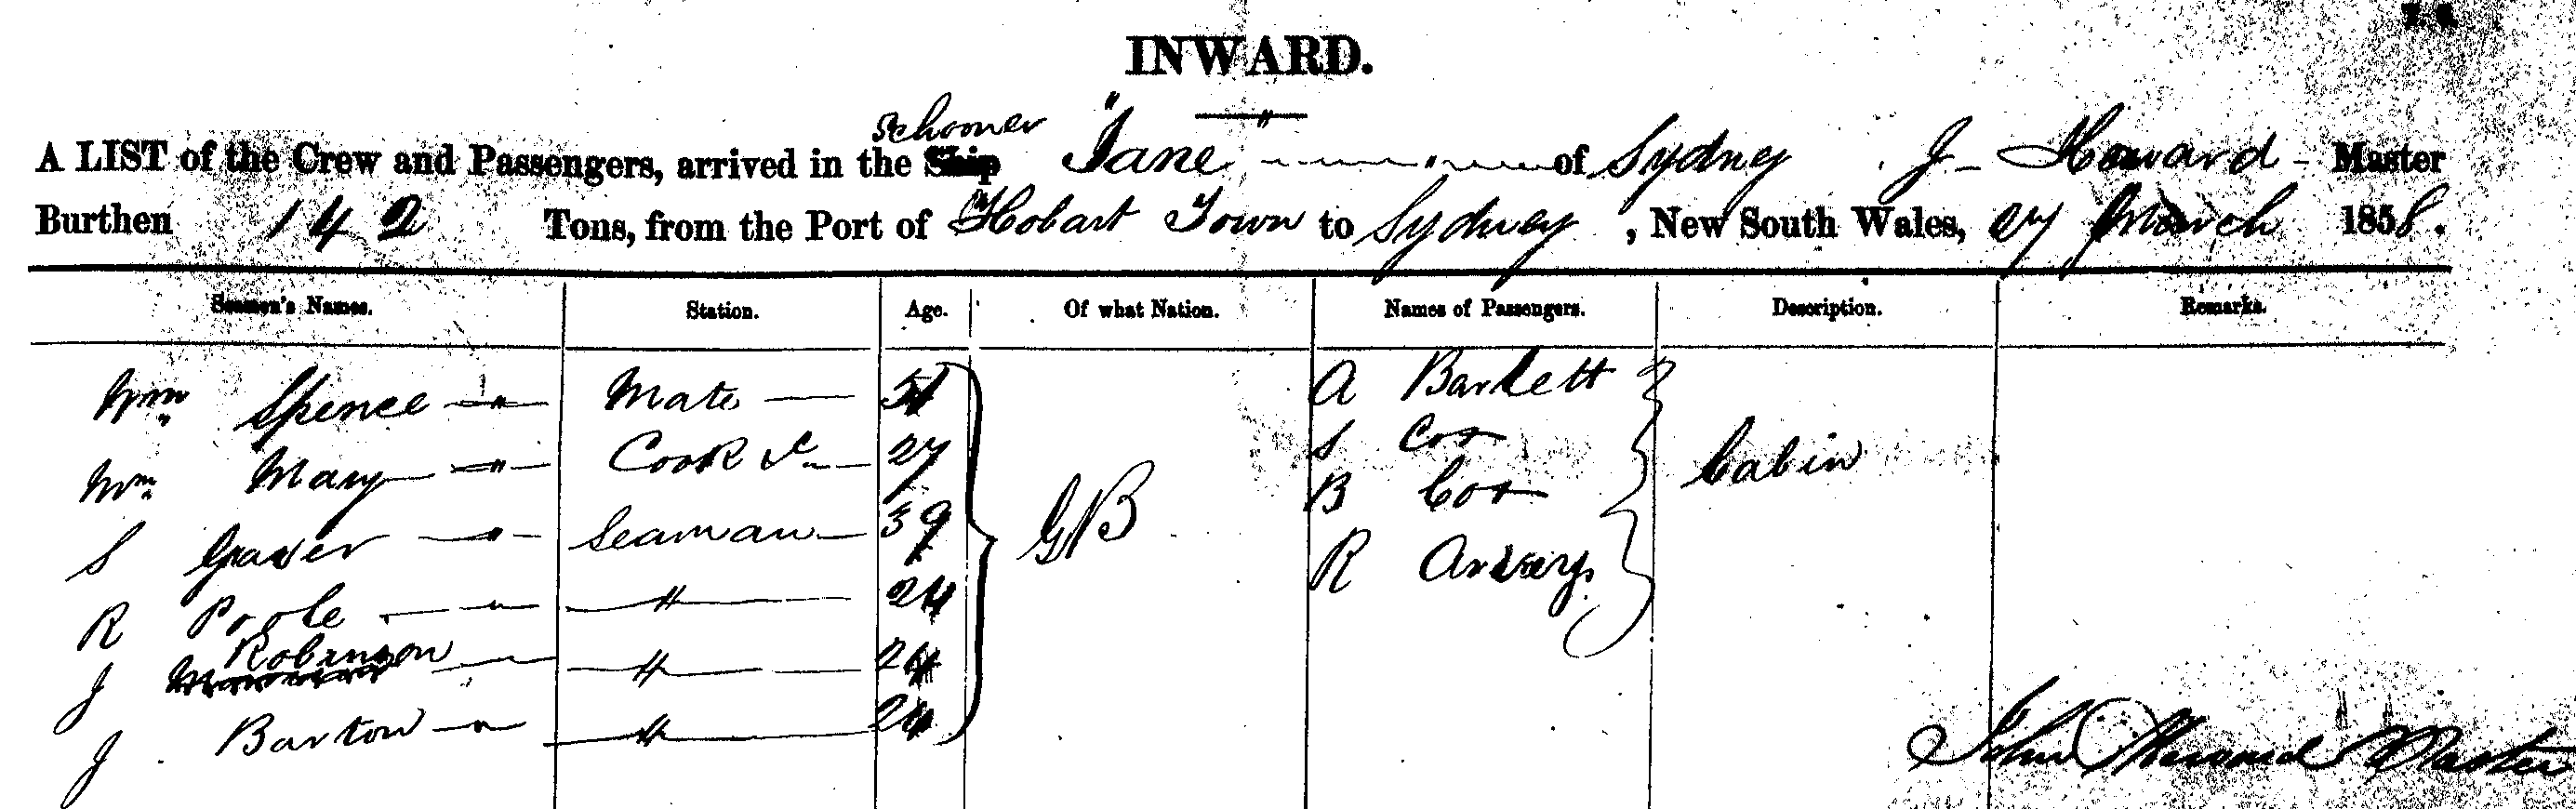 INWARD.
schooner
A LIST of the Crew and Passengers, arrived in the Ship "Jane" of Sydney J Howard Master
Burthen 142 Tons, from the Port of Hobart Town to Sydney, New South Wales, 27 March 1858.
Seamen's Names. Station. Age. Of what Nation. Names of Passengers. Description. Remarks.
Wm Spence Mate A Bartlett
Wm Mary Cook &c 27 S Cox
B Cox Cabin
S Seaman 39 GB R
R Poole " 24
Robinson
J " 24
J Barton " 24
John Howard Master